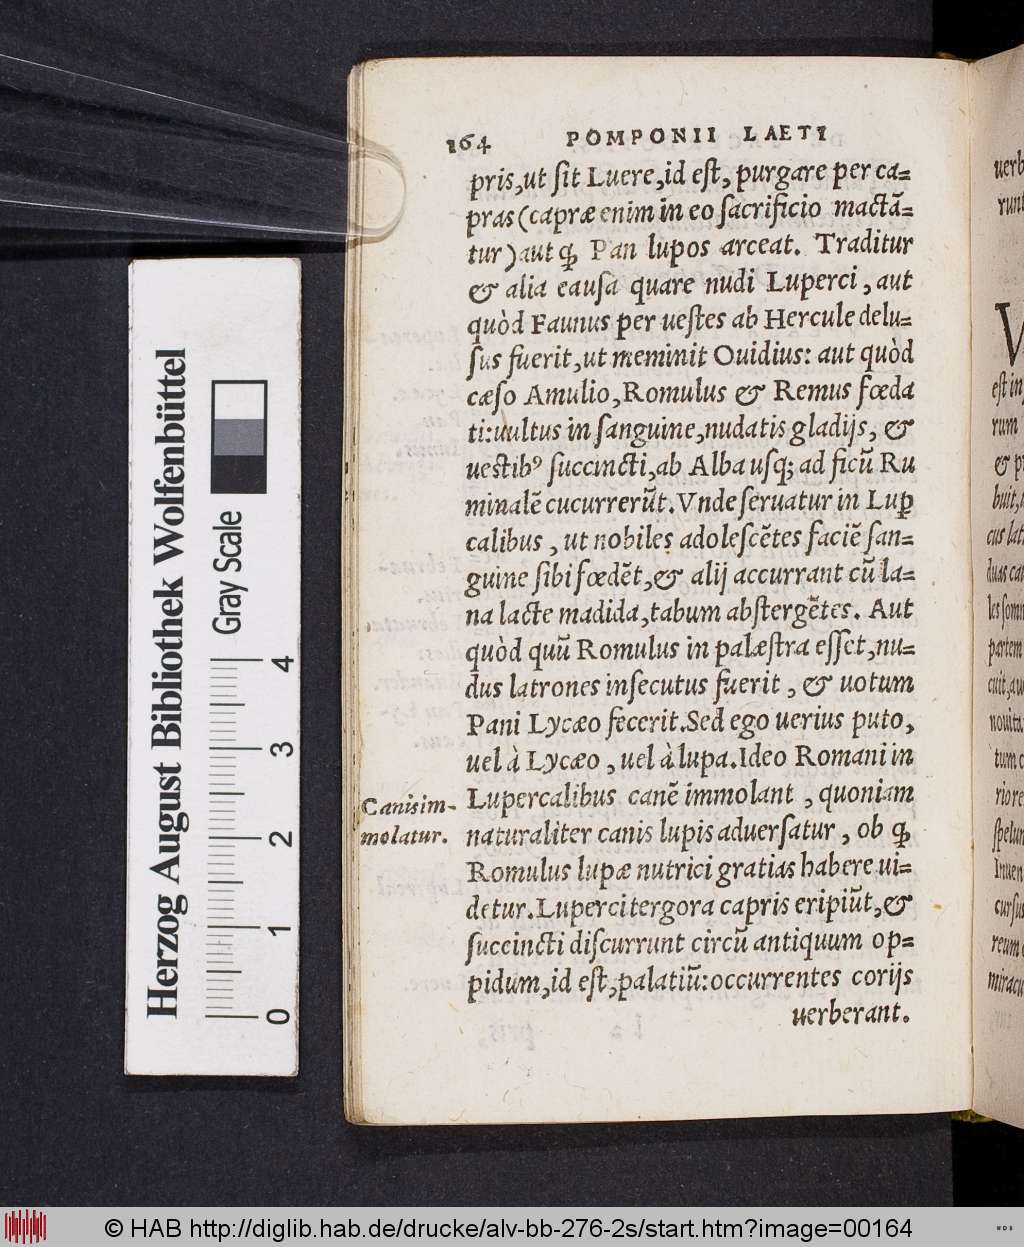 164 POMPONII LAETI
pris,ut ſit Luere,id eſt, purgare per ca=
pras (capræ enim in eo ſacrificio mactã=
tur) aut ꝙ Pan lupos arceat. Traditur
& alia cauſa quare nudi Luperci, aut
quòd Faunus per ueſtes ab Hercule delu=
ſus fuerit, ut meminit Ouidius: aut quòd
cæſo Amulio, Romulus & Remus fœda
ti: uultus in ſanguine, nudatis gladijs, &
ueſtibꝰ ſuccincti, ab Alba uſq; ad ficũ Ru
minalẽ cucurrerũt. Vnde ſeruatur in Luꝑ
calibus, ut nobiles adoleſcẽtes faciẽ ſan=
guine ſibi fœdẽt, & alij accurrant cũ la=
na lacte madida, tabum abſtergẽtes. Aut
quòd quũ Romulus in palæſtra eſſet, nu=
dus latrones inſecutus fuerit, & uotum
Pani Lycæo fecerit. Sed ego uerius puto,
uel à Lycæo, uel à lupa. Ideo Romani in
Canis im-
molatur.
Lupercalibus canẽ immolant, quoniam
naturaliter canis lupis aduerſatur, ob ꝙ
Romulus lupæ nutrici gratias habere ui=
detur. Luperci tergora capris eripiũt, &
ſuccincti diſcurrunt circũ antiquum op=
pidum, id eſt, palatiũ: occurrentes corijs
uerberant.
uerb
runt
V
eſt in
rum
& p
buit,
cus lat
duas ca
les ſom
partem
cuit, au
nouita
tum c
rio re
ſpelun
Inuen
curſus
reum
miracu
Herzog August Bibliothek Wolfenbüttel
Gray Scale
0 1 2 3 4
© HAB http://diglib.hab.de/drucke/alv-bb-276-2s/start.htm?image=00164
WDB